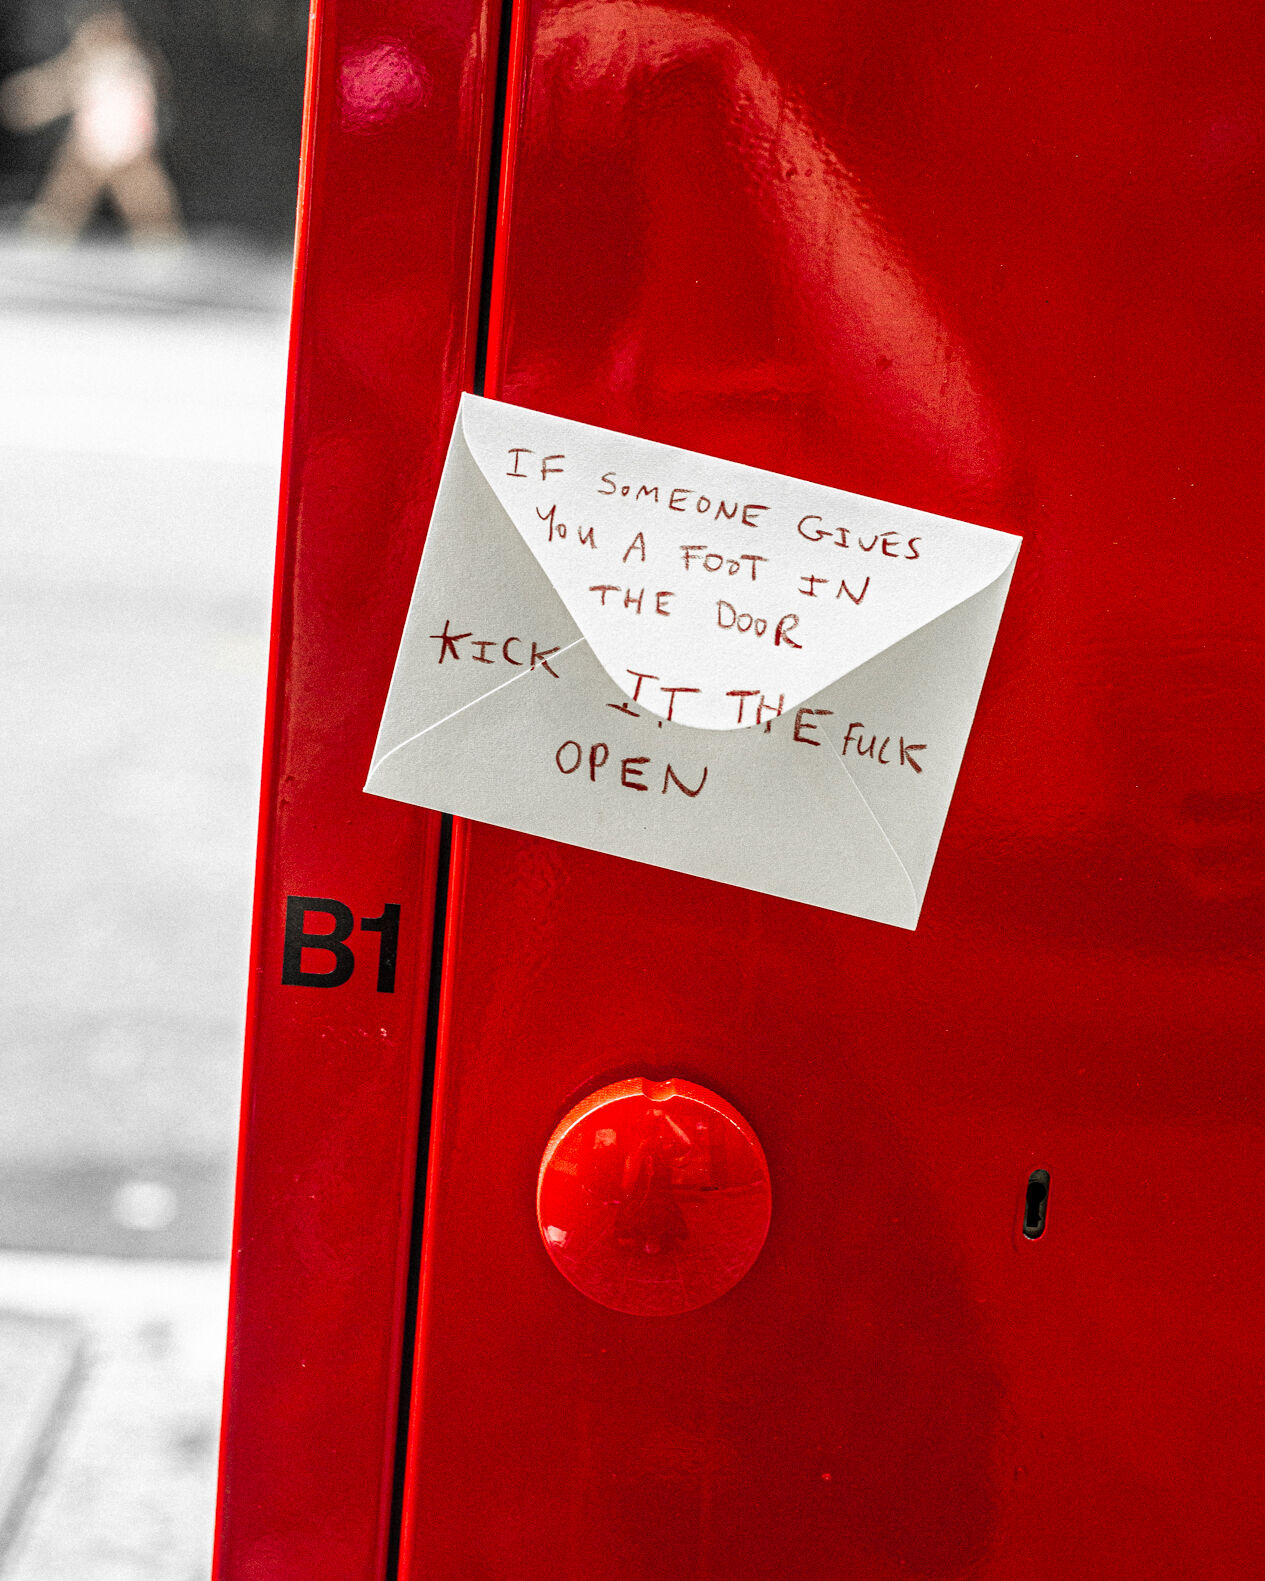 IF SOMEONE GIVES
YOU A FOOT IN
THE DOOR
KICK IT THE FUCK
OPEN
B1